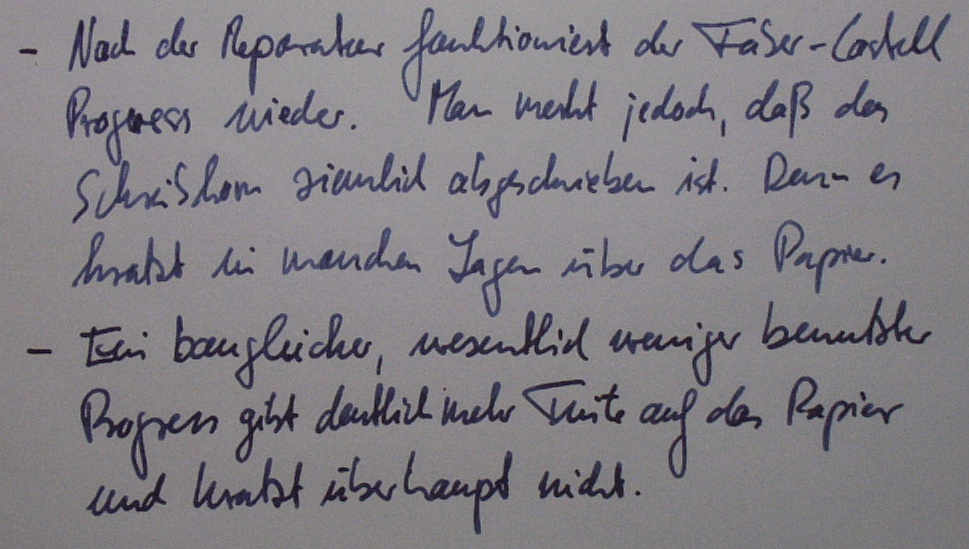 - Nach der Reparatur funktioniert der Faber-Castell
Progress wieder. Man merkt jedoch, daß das
Schreibkorn ziemlich abgeschrieben ist. Denn es
kratzt in manchen Lagen über das Papier.
- Ein baugleicher, wesentlich weniger benutzter
Progress gibt deutlich mehr Tinte auf das Papier
und kratzt überhaupt nicht.